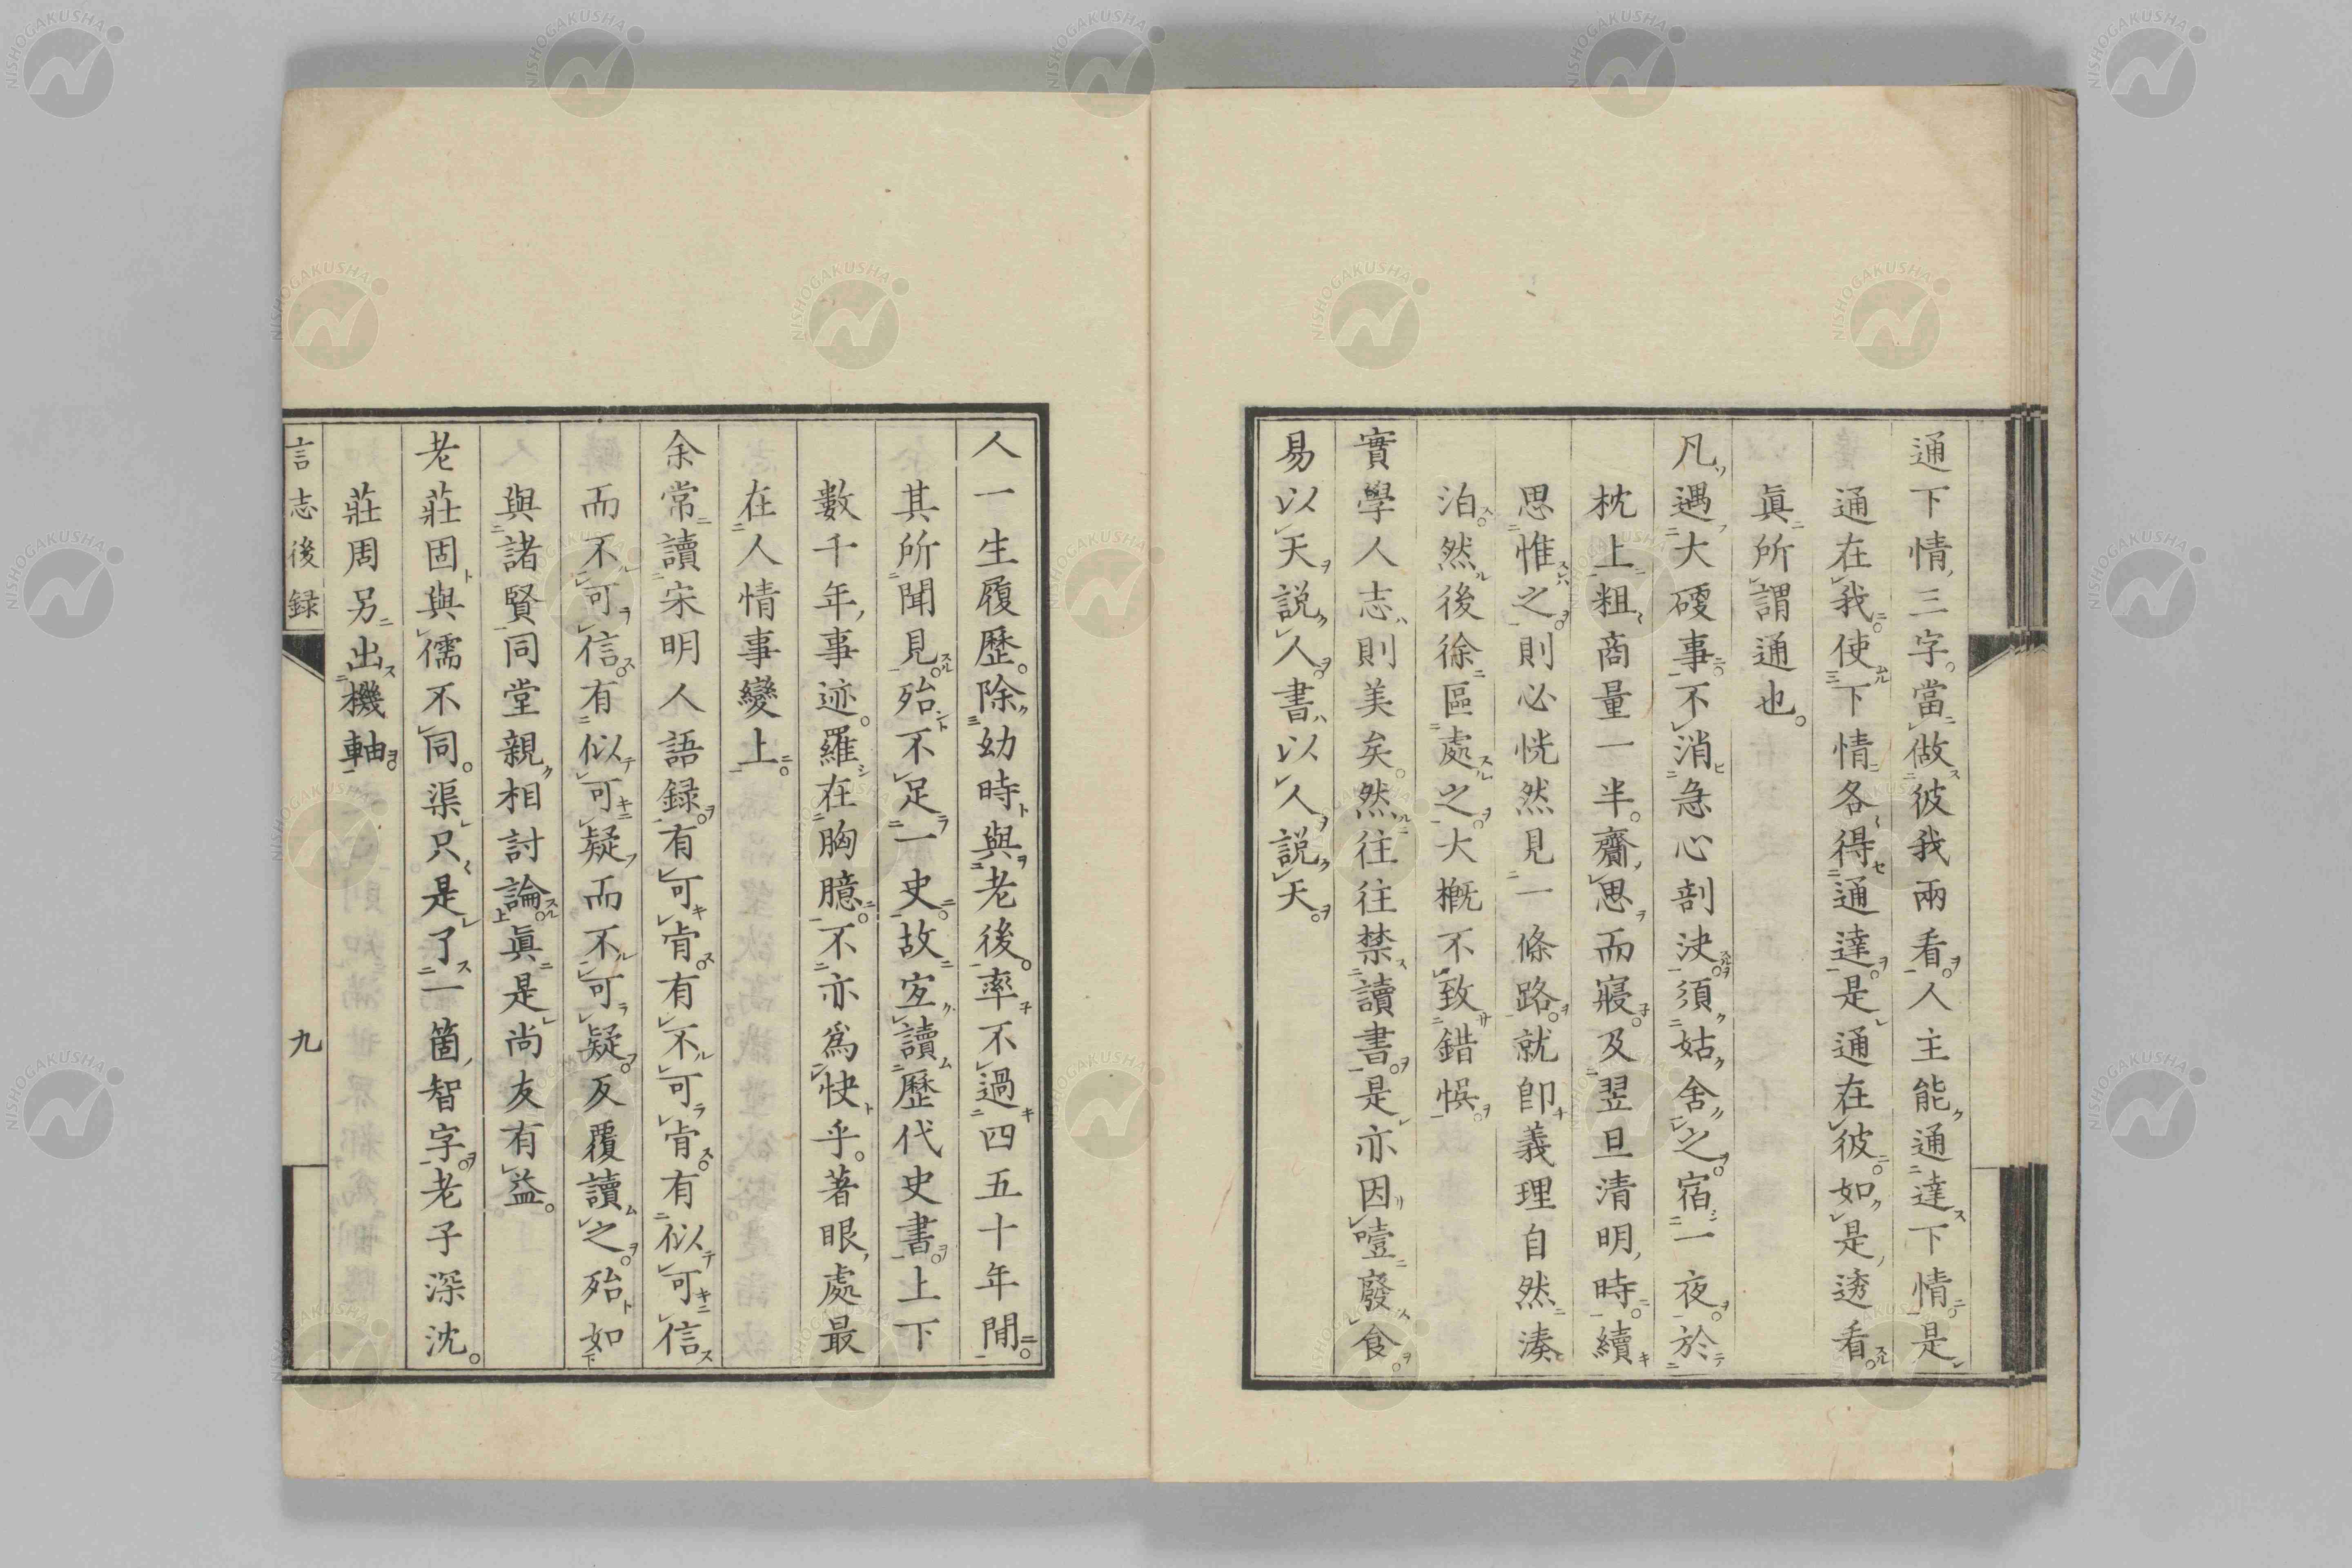 通下情三字。當做彼我兩看。人主能通達下情。是
通在我。使下情各得通達。是通在彼。如是透看。
眞所謂通也。
凡遇大硬事。不消急心剖決。須姑舍之。宿一夜。於
枕上粗商量一半。齎思而寢。及翌旦清明時。續
思惟之。則必恍然見一條路。就卽義理自然湊
泊。然後徐區處之。大概不致錯悞。
實學人志則美矣。然往往禁讀書。是亦因噎廢食。
易以天説人。書以人説天。
人一生履歷。除幼時與老後。率不過四五十年閒。
其所聞見。殆不足一史。故宜讀歷代史書。上下
數千年事迹。羅在胸臆。不亦爲快乎。著眼處最
在人情事變上。
余常讀宋明人語録。有可肯。有不可肯。有似可信
而不可信。有似可疑而不可疑。反覆讀之。殆如
與諸賢同堂親相討論。眞是尚友有益。
老莊固與儒不同。渠只是了一箇智字。老子深沈。
莊周另出機軸。
言志後録
九
NISHOGAKUSHA